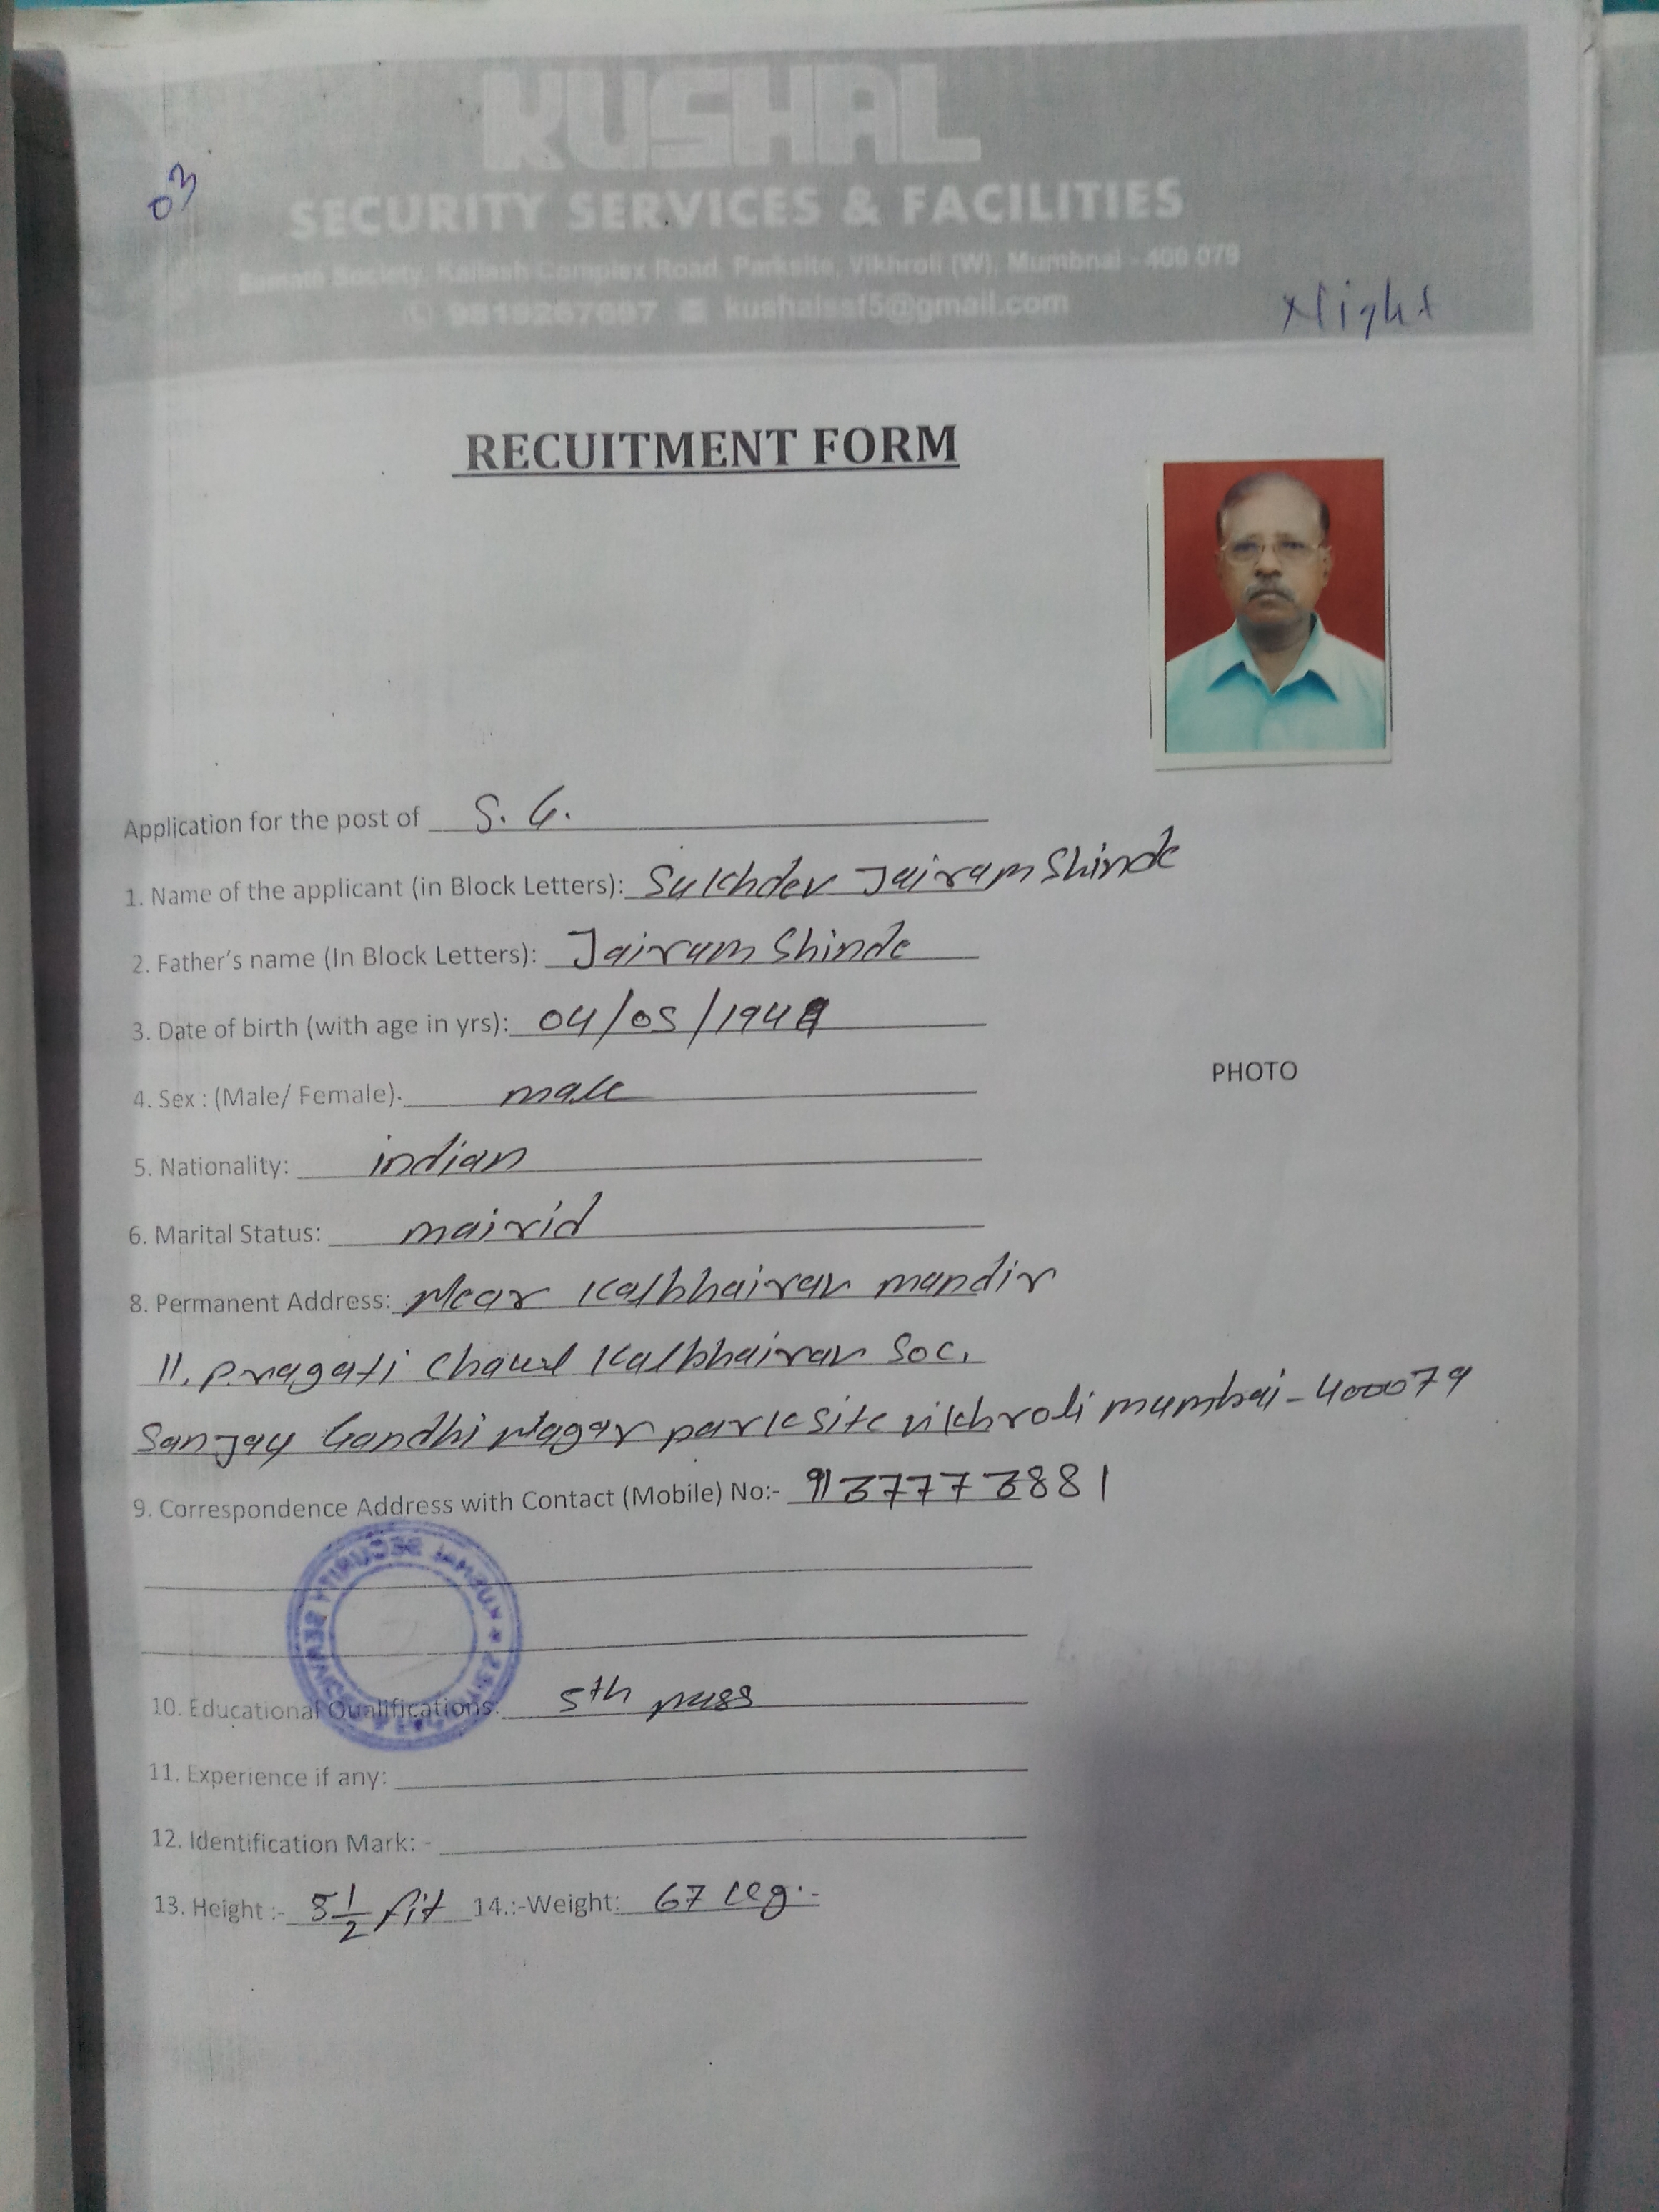 KUSHAL
03
SECURITY SERVICES & FACILITIES
Society, Kailash Complex Road, Parksite, Vikhroli (W), Mumbnai - 400 079
kushalssf5@gmail.com
Night
RECUITMENT FORM
Application for the post of S. G.
1. Name of the applicant (in Block Letters): Sukhdev Jairam Shinde
2. Father's name (In Block Letters): Jairam Shinde
3. Date of birth (with age in yrs): 04/05/1949
4. Sex : (Male/ Female). male
PHOTO
5. Nationality: indian
6. Marital Status: mairid
8. Permanent Address: Near Kalbhairav mandir
11. pragati Chawl Kalbhairav Soc.
Sanjay Gandhi Nagar parksite vikhroli mumbai - 400079
9. Correspondence Address with Contact (Mobile) No:- 9137773881
KUSHAL SECURITY SERVICES
10. Educational Qualifications: 5th pass
11. Experience if any:
12. Identification Mark: -
13. Height :- 5 1/2 fit 14.:-Weight: 67 kg.-